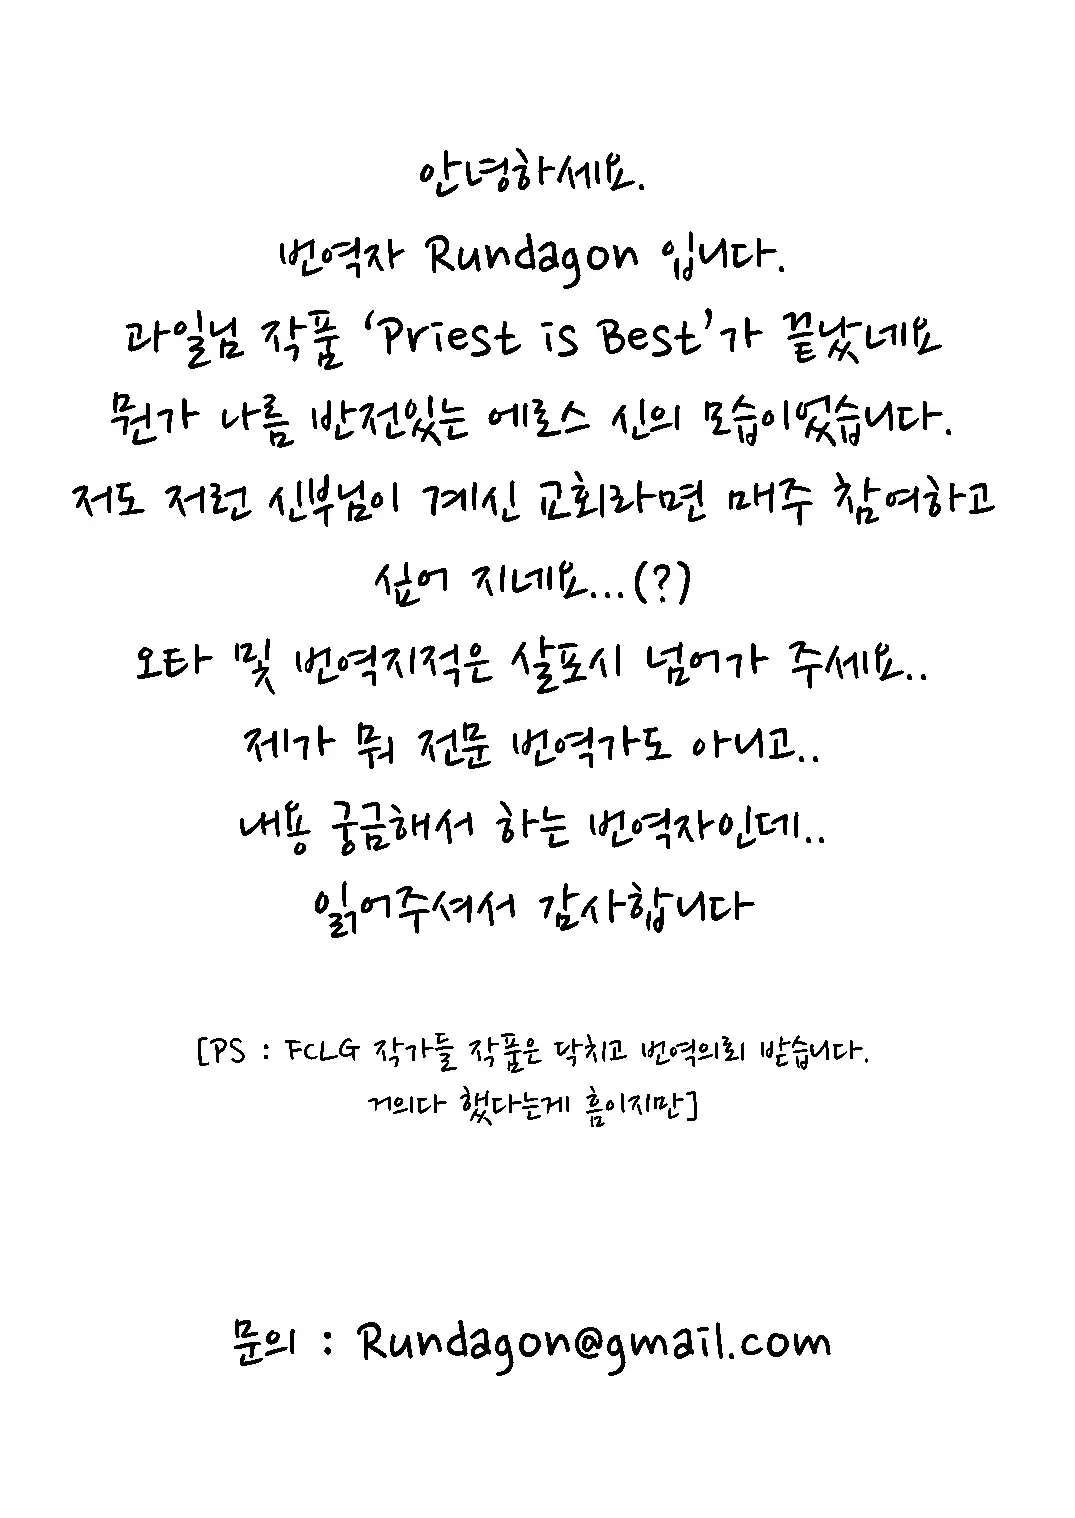 안녕하세요.
번역자 Rundagon 입니다.
과일님 작품 ‘Priest is Best’가 끝났네요
뭔가 나름 반전있는 에로스 신의 모습이었습니다.
저도 저런 신부님이 계신 교회라면 매주 참여하고
싶어 지네요...(?)
오타 및 번역지적은 살포시 넘어가 주세요..
제가 뭐 전문 번역가도 아니고..
내용 궁금해서 하는 번역자인데..
읽어주셔서 감사합니다
[PS : FCLG 작가들 작품은 닥치고 번역의뢰 받습니다.
거의다 했다는게 흠이지만]
문의 : Rundagon@gmail.com